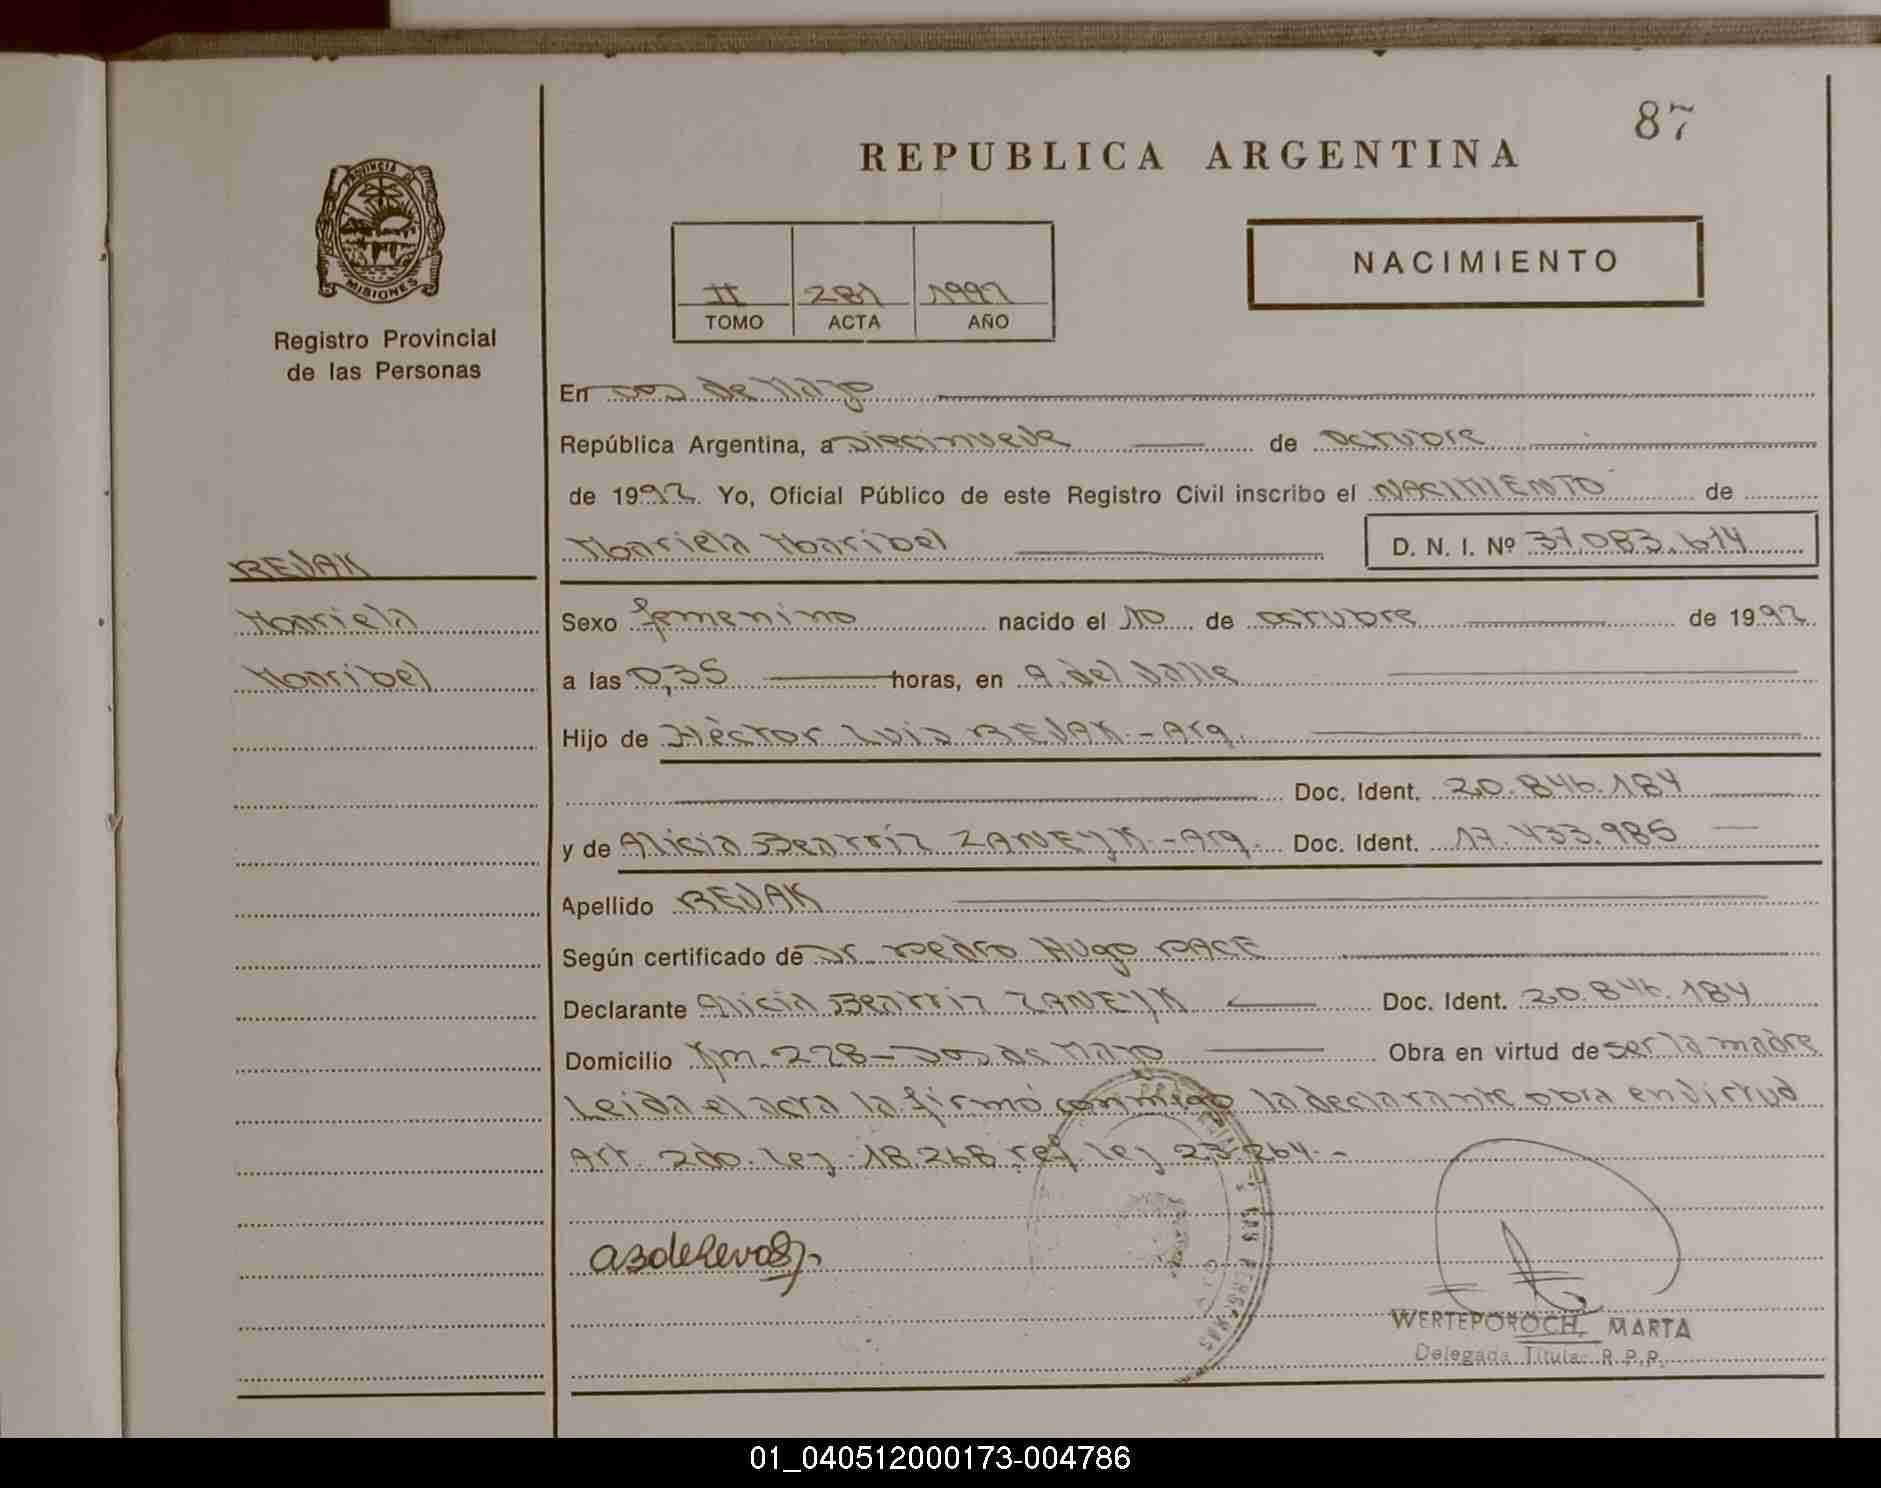 87
REPUBLICA ARGENTINA
PROVINCIA DE
MISIONES
Registro Provincial
de las Personas
II 281 1992
TOMO ACTA AÑO
NACIMIENTO
En Dos de Mayo
República Argentina, a diecinueve de octubre
de 1992 Yo, Oficial Público de este Registro Civil inscribo el NACIMIENTO de
Mariela Maribel D. N. I. Nº 37.083.614
REVAK
Mariela
Maribel
Sexo femenino nacido el 10 de octubre de 1992
a las 0,35 horas, en A. del Valle
Hijo de Hèctor Luis REVAK - Arg.
Doc. Ident. 20.846.184
y de Alicia Beatriz ZANEYK - Arg. Doc. Ident. 17.433.985
Apellido REVAK
Según certificado de Dr. Pedro Hugo PACE
Declarante Alicia Beatriz ZANEYK Doc. Ident. 20.846.184
Domicilio Km. 228 - Dos de Mayo Obra en virtud de ser la madre
Leida el acta la firmó conmigo la declarante obra en virtud
Art. 2do. Ley 18.268 ref. Ley 23.264.-
WERTEPOROCH, MARTA
Delegada Titular R.P.P.
01_040512000173-004786